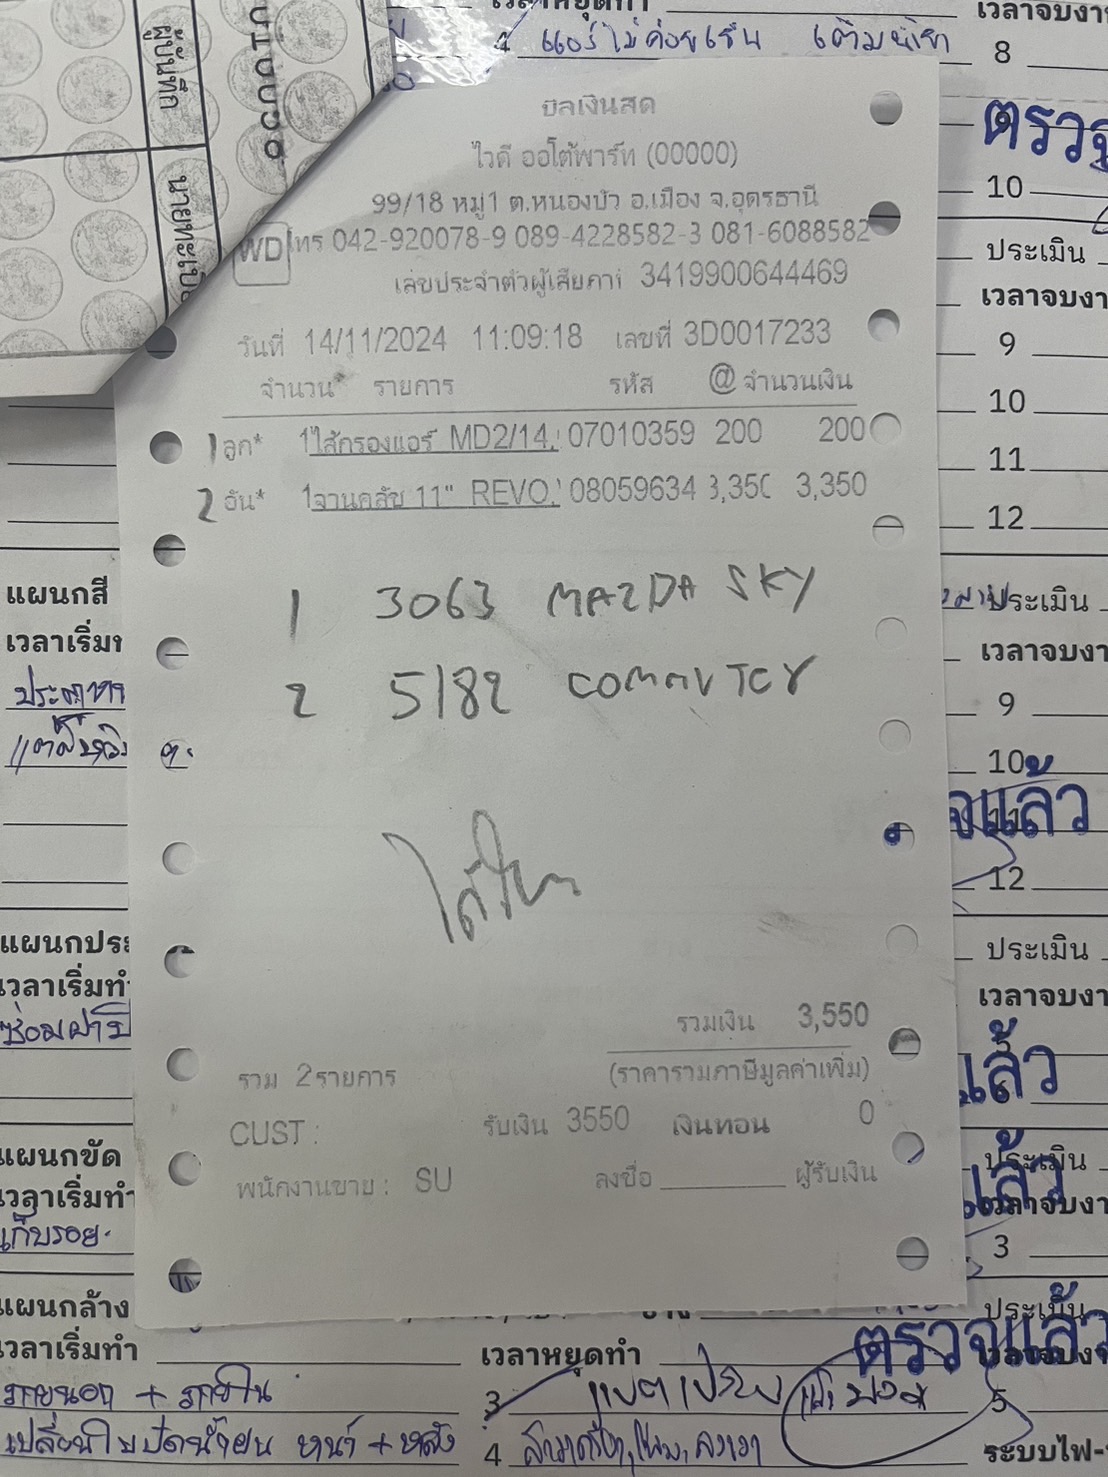 บิลเงินสด
ไวดี ออโต้พาร์ท (00000)
99/18 หมู่1 ต.หนองบัว อ.เมือง จ.อุดรธานี
WD โทร 042-920078-9 089-4228582-3 081-6088582
เลขประจำตัวผู้เสียภาษี 3419900644469
วันที่ 14/11/2024 11:09:18 เลขที่ 3D0017233
จำนวน* รายการ รหัส @ จำนวนเงิน
1 ลูก* 1ไส้กรองแอร์ MD2/14, 07010359 200 200
2 อัน* 1จานคลัช 11" REVO, 08059634 3,350 3,350
1 3063 MAZDA SKY
2 5182 COMMUTER
รวมเงิน 3,550
รวม 2รายการ (ราคารวมภาษีมูลค่าเพิ่ม)
CUST : รับเงิน 3550 เงินทอน 0
พนักงานขาย : SU ลงชื่อ ผู้รับเงิน
ผู้บันทึก
เวลาหยุดทำ
เวลาจบงา
4 แอร์ไม่ค่อยเย็น เติมน้ำยา
8
10
ประเมิน
เวลาจบงา
9
10
11
12
แผนกสี
ประเมิน
เวลาเริ่มท
เวลาจบงา
9
10
จแล้ว
12
แผนกประ
ประเมิน
เวลาเริ่มทำ
เวลาจบงา
ซ่อมฝาปิ
แล้ว
แผนกขัด
ประเมิน
เวลาเริ่มทำ
แล้ว
เวลาจบงา
เก็บรอย
3
แผนกล้าง
ประเมิน
เวลาเริ่มทำ
เวลาหยุดทำ
ตรวจแล้ว
เวลาจบงา
ภายนอก + ภายใน
3
5
เปลี่ยนใบปัดน้ำฝน หน้า + หลัง
4
ระบบไฟ-